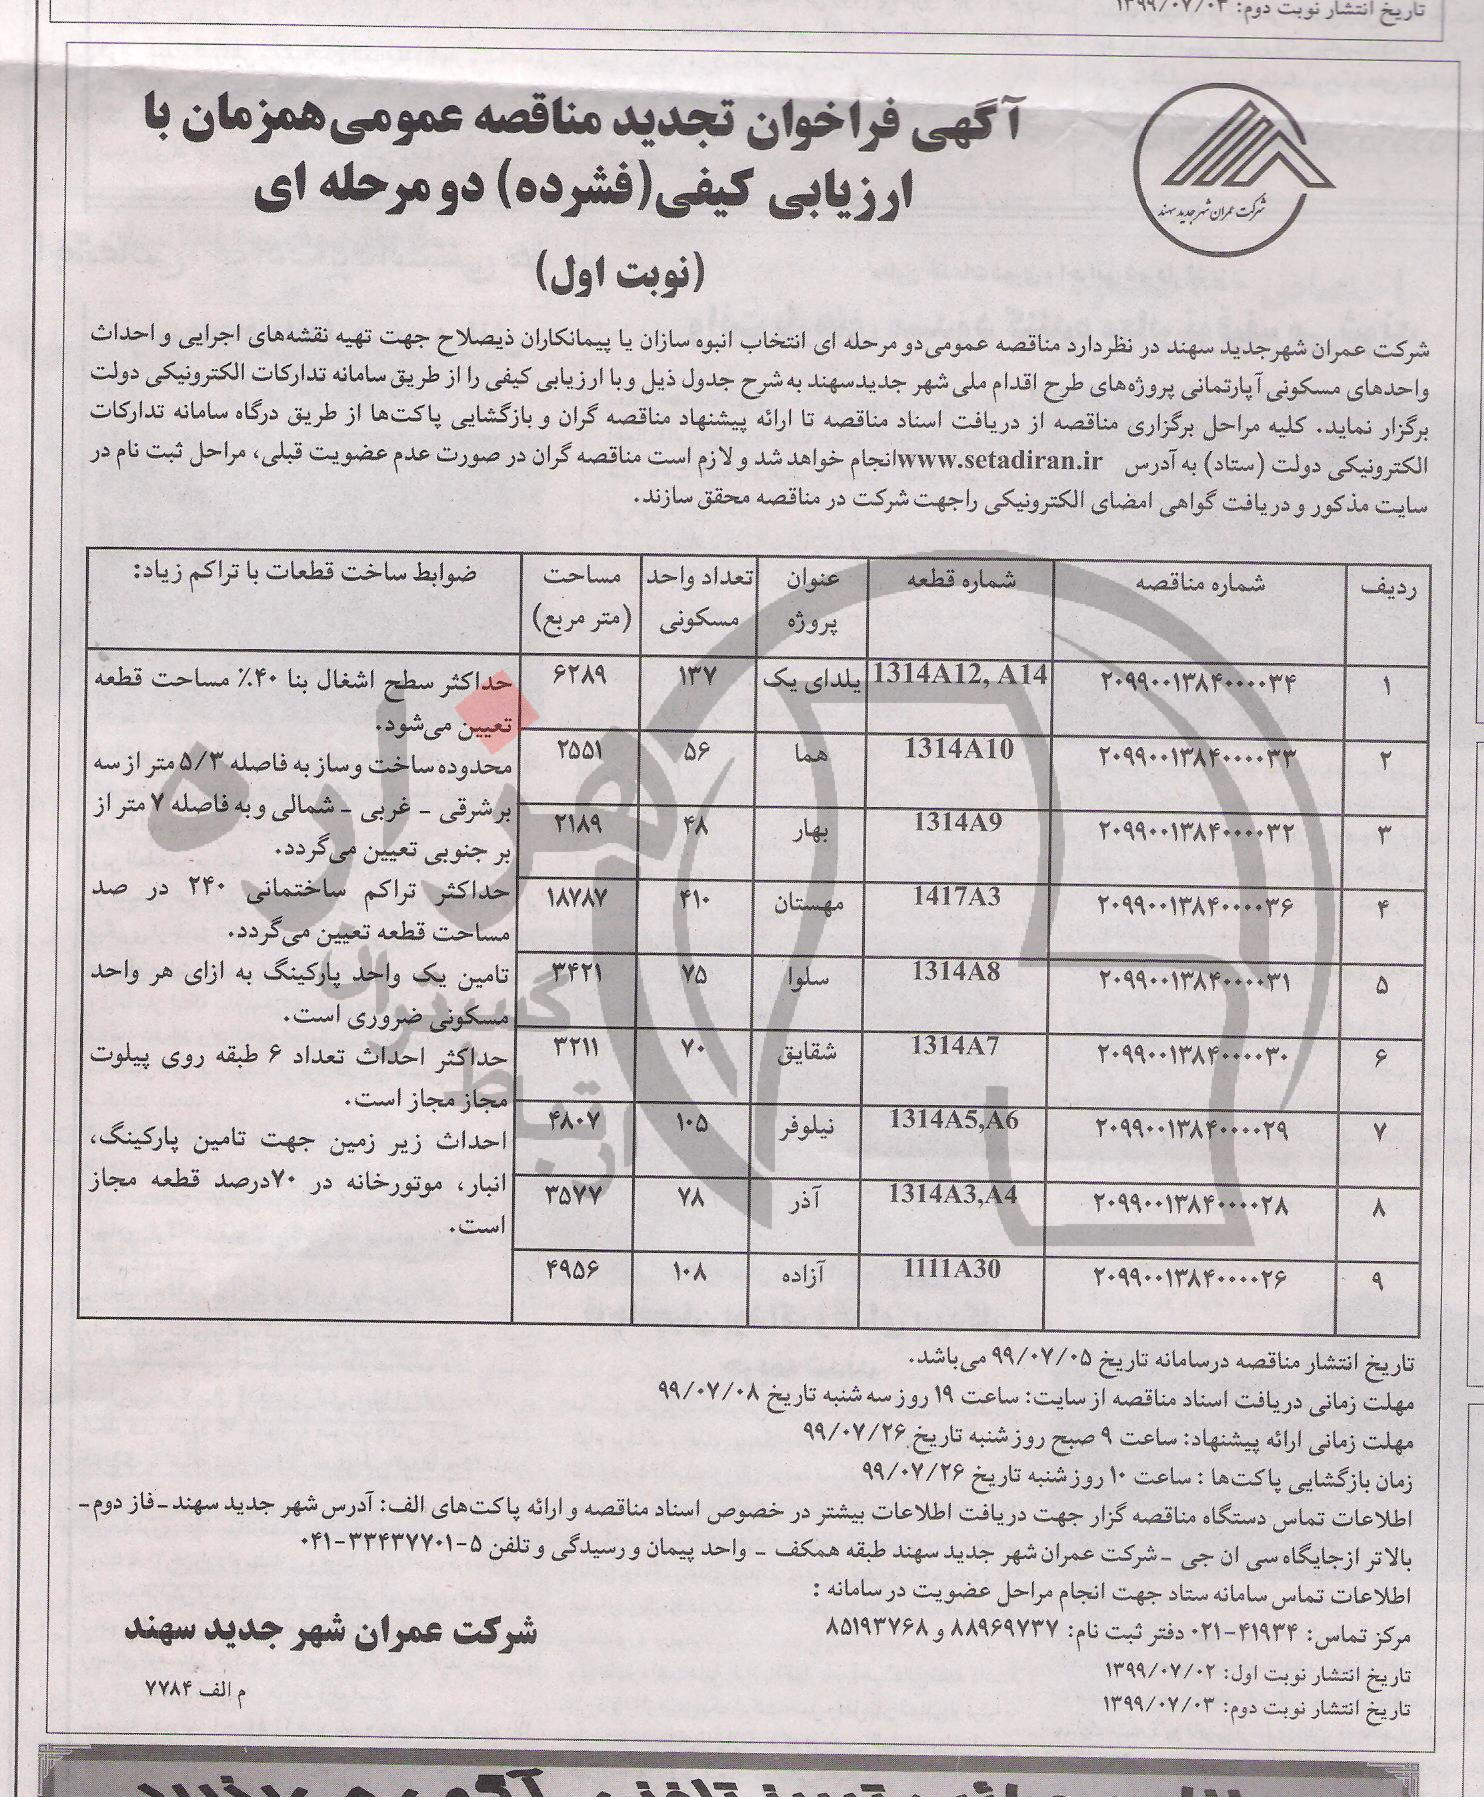 تاریخ انتشار نوبت دوم: ۱۳۹۹/۰۷/۰۳
شرکت عمران شهر جدید سهند
آگهی فراخوان تجدید مناقصه عمومی همزمان با
ارزیابی کیفی(فشرده) دو مرحله ای
(نوبت اول)
شرکت عمران شهرجدید سهند در نظردارد مناقصه عمومی‌دو مرحله ای انتخاب انبوه سازان یا پیمانکاران ذیصلاح جهت تهیه نقشه‌های اجرایی و احداث
واحدهای مسکونی آپارتمانی پروژه‌های طرح اقدام ملی شهر جدیدسهند به‌شرح جدول ذیل وبا ارزیابی کیفی را از طریق سامانه تدارکات الکترونیکی دولت
برگزار نماید. کلیه مراحل برگزاری مناقصه از دریافت اسناد مناقصه تا ارائه پیشنهاد مناقصه گران و بازگشایی پاکت‌ها از طریق درگاه سامانه تدارکات
الکترونیکی دولت (ستاد) به آدرس www.setadiran.irانجام خواهد شد و لازم است مناقصه گران در صورت عدم عضویت قبلی، مراحل ثبت نام در
سایت مذکور و دریافت گواهی امضای الکترونیکی راجهت شرکت در مناقصه محقق سازند.
ردیف شماره مناقصه شماره قطعه عنوان پروژه تعداد واحد مسکونی مساحت (متر مربع) ضوابط ساخت قطعات با تراکم زیاد:
۱ ۲۰۹۹۰۰۱۳۸۴۰۰۰۰۳۴ 1314A12, A14 یلدای یک ۱۳۷ ۶۲۸۹
۲ ۲۰۹۹۰۰۱۳۸۴۰۰۰۰۳۳ 1314A10 هما ۵۶ ۲۵۵۱
۳ ۲۰۹۹۰۰۱۳۸۴۰۰۰۰۳۲ 1314A9 بهار ۴۸ ۲۱۸۹
۴ ۲۰۹۹۰۰۱۳۸۴۰۰۰۰۳۶ 1417A3 مهستان ۴۱۰ ۱۸۷۸۷
۵ ۲۰۹۹۰۰۱۳۸۴۰۰۰۰۳۱ 1314A8 سلوا ۷۵ ۳۴۲۱
۶ ۲۰۹۹۰۰۱۳۸۴۰۰۰۰۳۰ 1314A7 شقایق ۷۰ ۳۲۱۱
۷ ۲۰۹۹۰۰۱۳۸۴۰۰۰۰۲۹ 1314A5,A6 نیلوفر ۱۰۵ ۴۸۰۷
۸ ۲۰۹۹۰۰۱۳۸۴۰۰۰۰۲۸ 1314A3,A4 آذر ۷۸ ۳۵۷۷
۹ ۲۰۹۹۰۰۱۳۸۴۰۰۰۰۲۶ 1111A30 آزاده ۱۰۸ ۴۹۵۶
حداکثر سطح اشغال بنا ۴۰٪ مساحت قطعه
تعیین می‌شود.
محدوده ساخت وساز به فاصله ۵/۳ متر از سه
بر شرقی - غربی - شمالی و به فاصله ۷ متر از
بر جنوبی تعیین می‌گردد.
حداکثر تراکم ساختمانی ۲۴۰ در صد
مساحت قطعه تعیین می‌گردد.
تامین یک واحد پارکینگ به ازای هر واحد
مسکونی ضروری است.
حداکثر احداث تعداد ۶ طبقه روی پیلوت
مجاز مجاز است.
احداث زیر زمین جهت تامین پارکینگ،
انبار، موتورخانه در ۷۰درصد قطعه مجاز
است.
هزاره
گسترش
ارتباط
تاریخ انتشار مناقصه درسامانه تاریخ ۹۹/۰۷/۰۵ می‌باشد.
مهلت زمانی دریافت اسناد مناقصه از سایت: ساعت ۱۹ روز سه شنبه تاریخ ۹۹/۰۷/۰۸
مهلت زمانی ارائه پیشنهاد: ساعت ۹ صبح روز شنبه تاریخ ۹۹/۰۷/۲۶
زمان بازگشایی پاکت‌ها : ساعت ۱۰ روزشنبه تاریخ ۹۹/۰۷/۲۶
اطلاعات تماس دستگاه مناقصه گزار جهت دریافت اطلاعات بیشتر در خصوص اسناد مناقصه و ارائه پاکت‌های الف: آدرس شهر جدید سهند-فاز دوم-
بالاتر ازجایگاه سی ان جی -شرکت عمران شهر جدید سهند طبقه همکف - واحد پیمان و رسیدگی و تلفن ۵-۳۳۴۳۷۷۰۱-۰۴۱
اطلاعات تماس سامانه ستاد جهت انجام مراحل عضویت در سامانه :
مرکز تماس: ۴۱۹۳۴-۰۲۱ دفتر ثبت نام: ۸۸۹۶۹۷۳۷ و ۸۵۱۹۳۷۶۸
تاریخ انتشار نوبت اول: ۱۳۹۹/۰۷/۰۲
تاریخ انتشار نوبت دوم: ۱۳۹۹/۰۷/۰۳
شرکت عمران شهر جدید سهند
م الف ۷۷۸۴